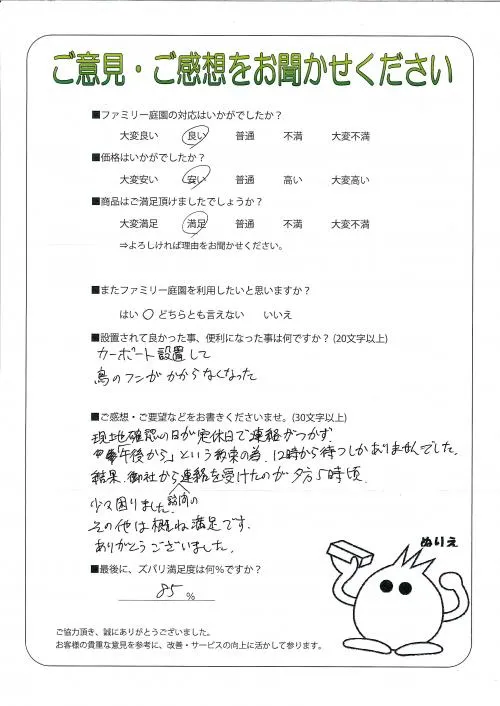 ご意見・ご感想をお聞かせください
■ファミリー庭園の対応はいかがでしたか？
大変良い 良い 普通 不満 大変不満
■価格はいかがでしたか？
大変安い 安い 普通 高い 大変高い
■商品はご満足頂けましたでしょうか？
大変満足 満足 普通 不満 大変不満
⇒よろしければ理由をお聞かせください。
■またファミリー庭園を利用したいと思いますか？
はい ○ どちらとも言えない いいえ
■設置されて良かった事、便利になった事は何ですか？(20文字以上)
カーポート設置して
鳥のフンがかからなくなった
■ご感想・ご要望などをお書きくださいませ。(30文字以上)
現地確認の日が定休日で連絡がつかず
「午後から」という約束の為、12時から待つしかありませんでした。
結果、御社から訪問の連絡を受けたのが夕方5時頃、
少々困りました。
その他は概ね満足です。
ありがとうございました。
■最後に、ズバリ満足度は何％ですか？
85 ％
ぬりえ
ご協力頂き、誠にありがとうございました。
お客様の貴重な意見を参考に、改善・サービスの向上に活かして参ります。